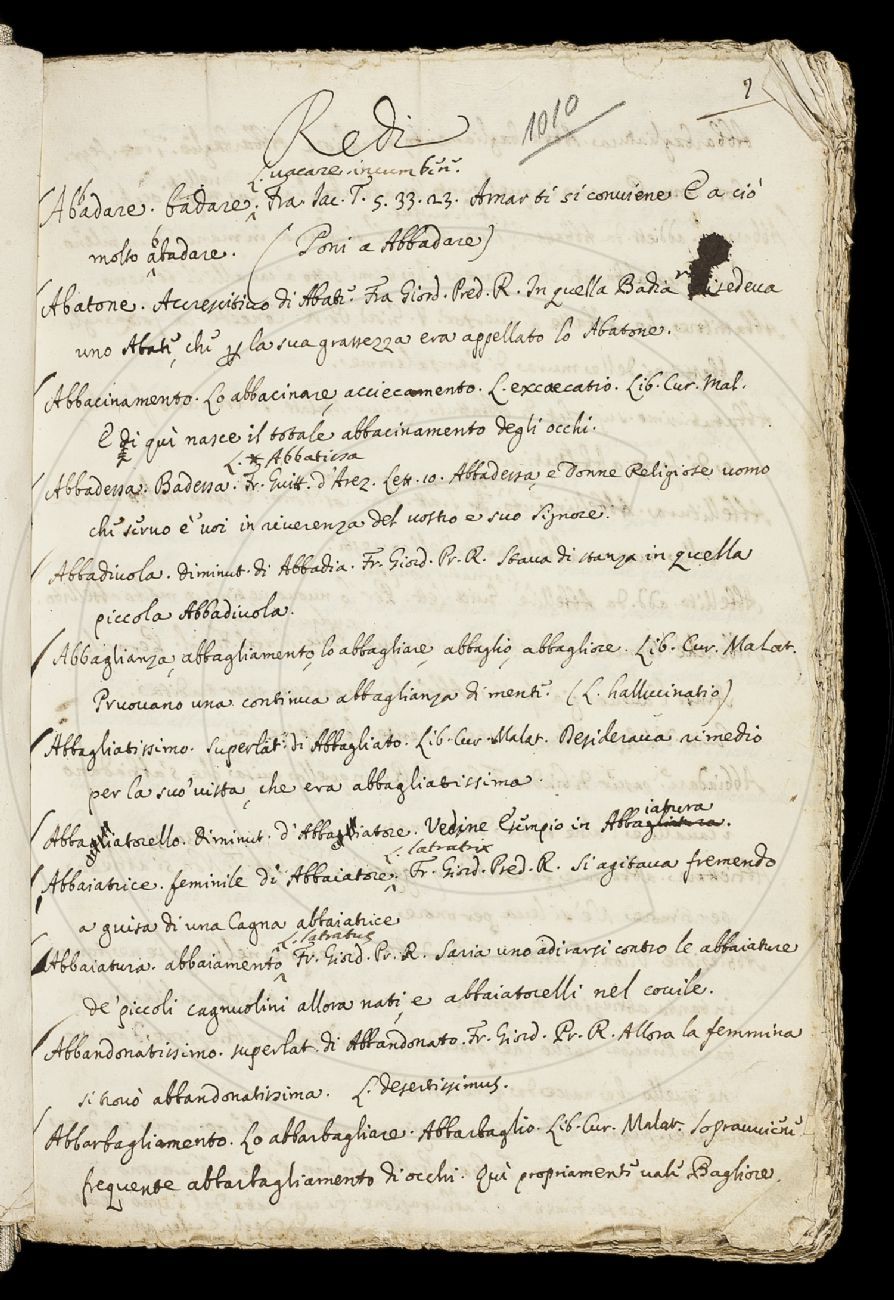 1
1010
Redi
L. vacare. incumbere.
Abbadare. badare. Fra. Iac. T. 5. 33. 23. Amar ti si conviene E a ciò
molto abbadare. (Poni a Abbadare)
Abatone. Accrescitivo di Abate. Fra Giord. Pred. R. In quella Badia vi risedeva
uno Abate, che per la sua grassezza era appellato lo Abatone.
Abbacinamento. Lo abbacinare, acciecamento. L. excæcatio. Lib. Cur. Mal.
E di quì nasce il totale abbacinamento degli occhi.
L. Abbatissa
Abbadessa. Badessa. Fr. Guitt. d'Arez. Lett. 10. Abbadessa, e Donne Religiose uomo
che servo è voi in riverenza del vostro e suo Signore.
Abbadivola. diminut. di Abbadia. Fr. Giord. Pr. R. Stava di stanza in quella
piccola Abbadivola.
Abbaglianza, abbagliamento, lo abbagliare, abbaglio, abbagliore. Lib. Cur. Malat.
Pruovano una continua abbaglianza di mente. (L. hallucinatio)
Abbagliatissimo. Superlat. di Abbagliato. Lib. Cur. Malat. Desiderava rimedio
per la suo' vista, che era abbagliatissima.
iatura
Abbaiatorello. diminut. d'Abbaiatore. Vedine Esempio in Abbagliatura.
L. latratrix
Abbaiatrice. feminile di Abbaiatore. Fr. Giord. Pred. R. Si agitava fremendo
a guisa di una Cagna abbaiatrice
L. latratus
Abbaiatura. abbaiamento Fr. Giord. Pr. R. Saria uno adirarsi contro le abbaiature
de' piccoli cagnuolini allora nati, e abbaiatorelli nel covile.
Abbandonatissimo. superlat. di Abbandonato. Fr. Giord. Pr. R. Allora la femmina
si trovò abbandonatissima. L. desertissimus.
Abbarbagliamento. Lo abbarbagliare. Abbarbaglio. Lib. Cur. Malat. Sopravviene
frequente abbarbagliamento di occhi. Quì propriamente vale Bagliore.